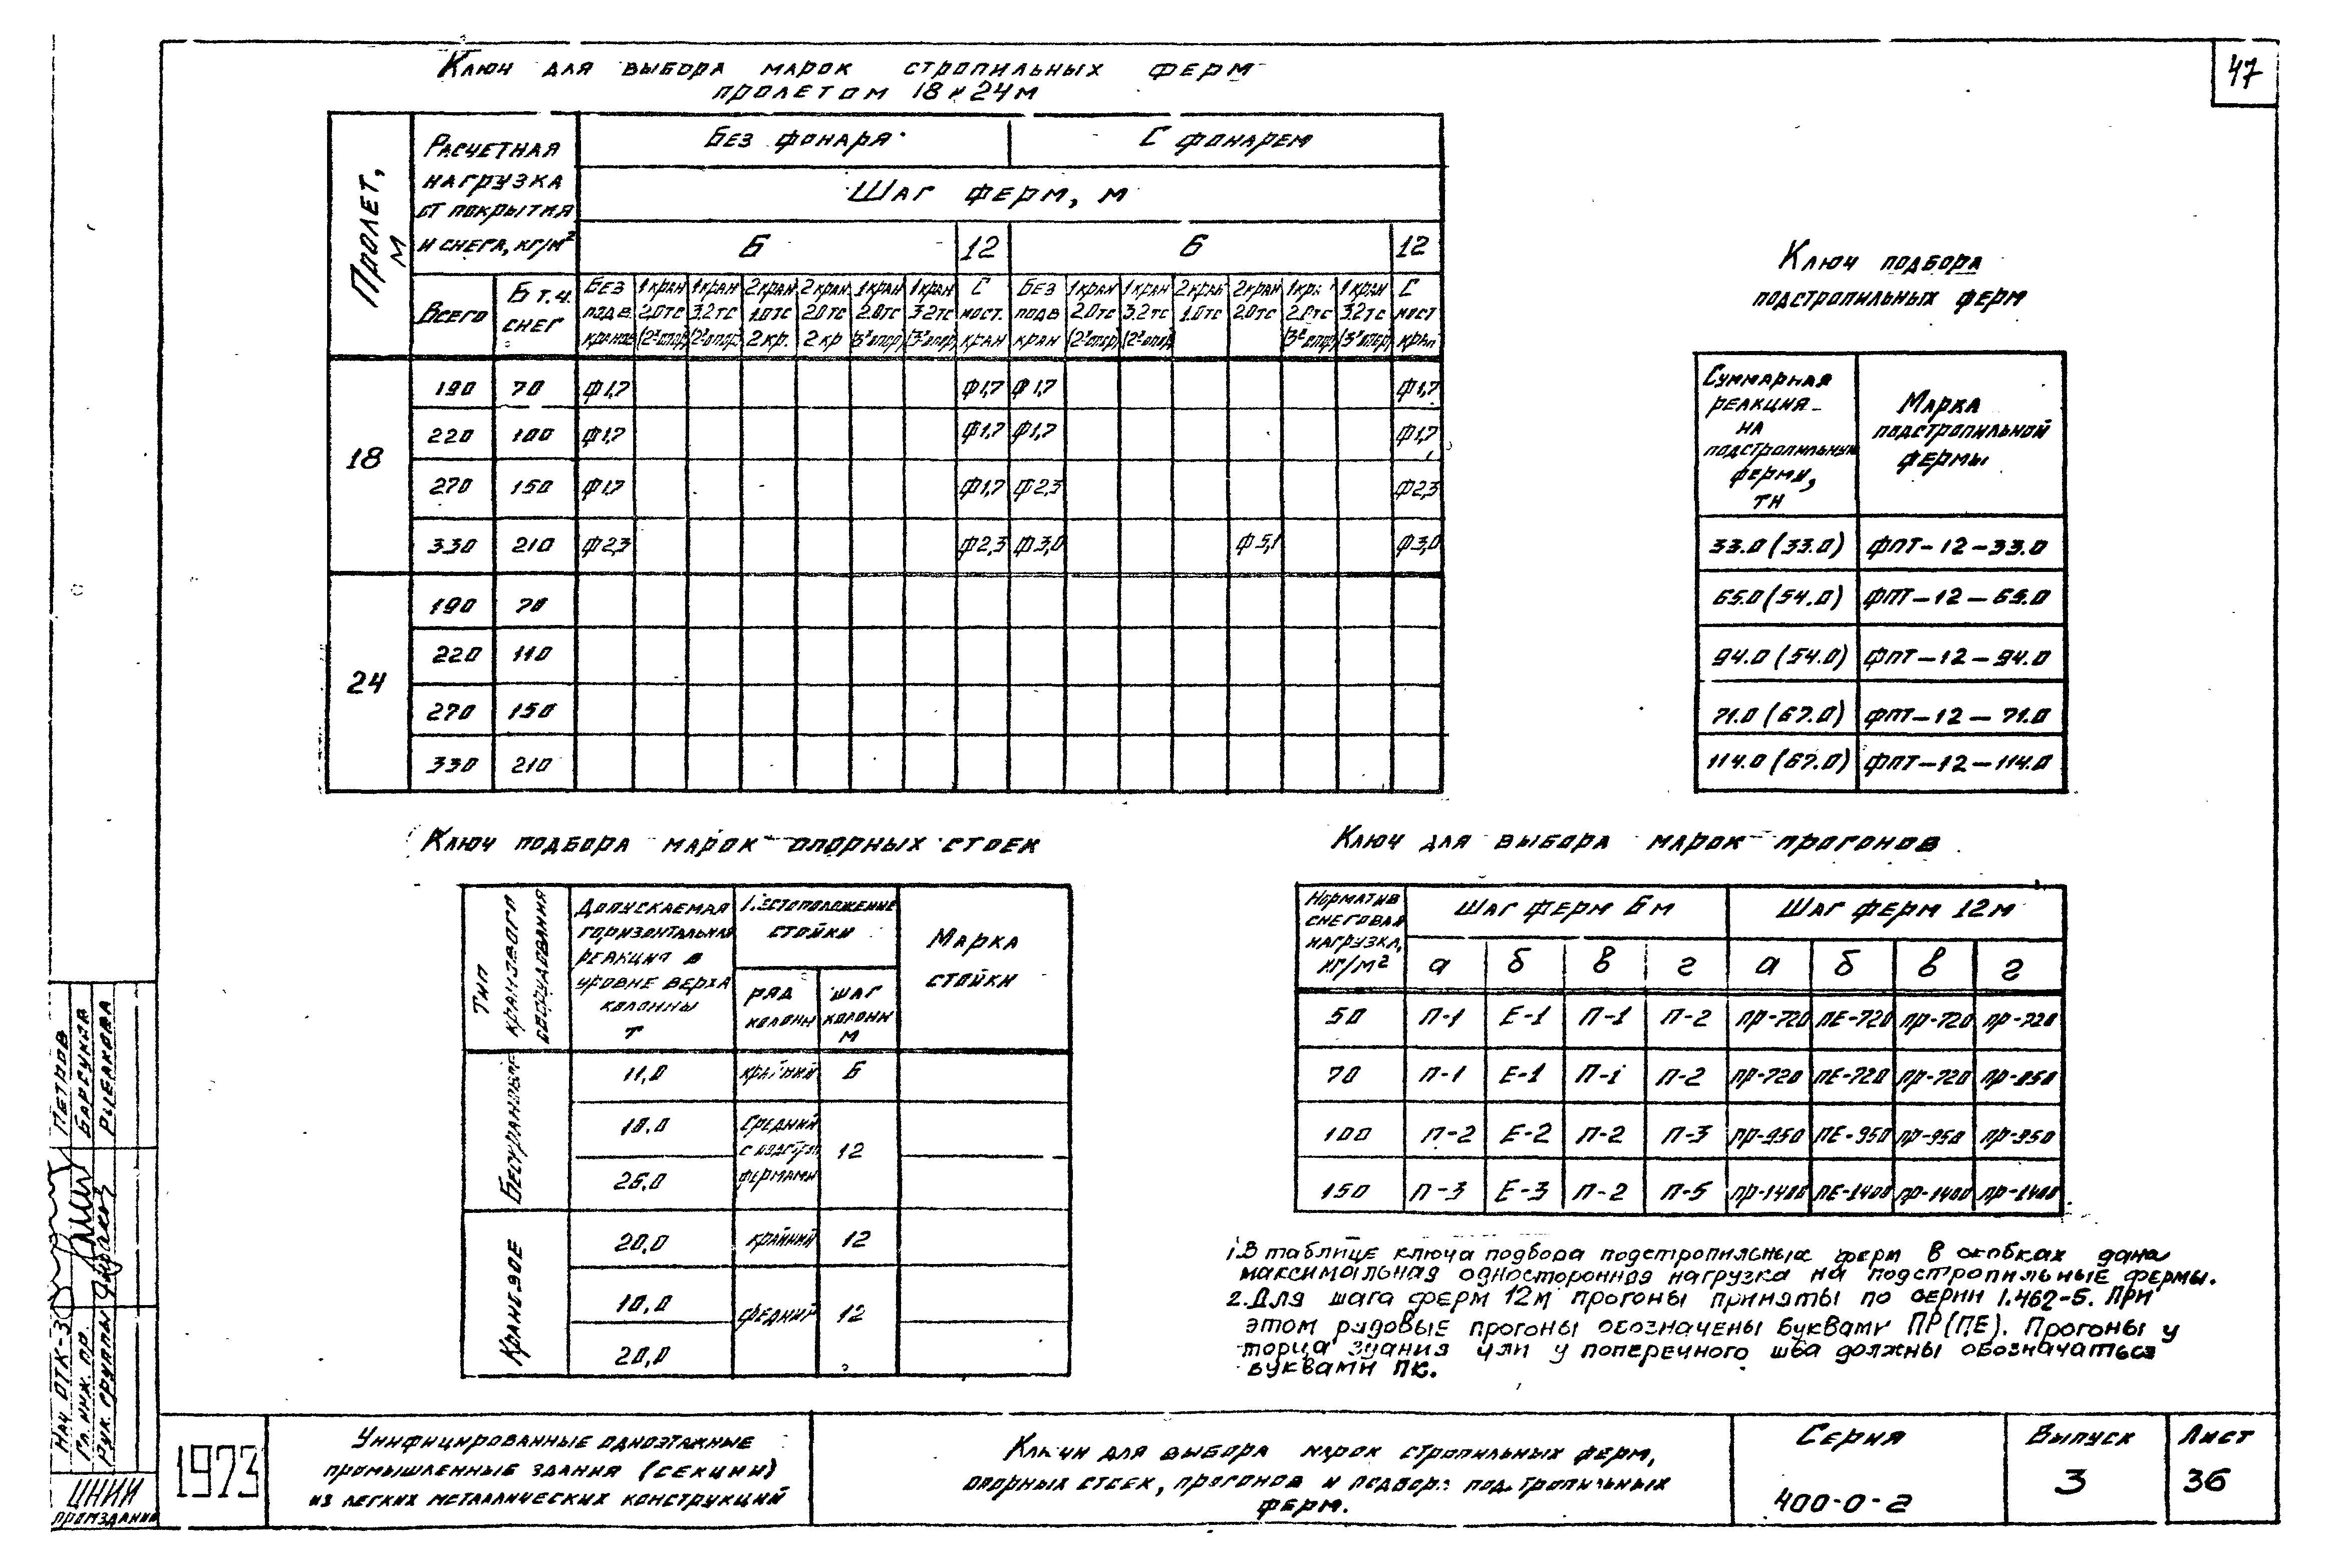 47
Ключ для выбора марок стропильных ферм
пролетом 18 и 24 м
Пролет, м
Расчетная нагрузка от покрытия и снега, кг/м²
Без фонаря
С фонарем
Шаг ферм, м
6 12 6 12
Всего
В т.ч. снег
Без подв. кранов
1 кран 2.0тс (2х опор)
1 кран 3.2тс (2х опор)
2 кран 1.0тс 2 кр.
2 кран 2.0тс 2 кр
1 кран 2.0тс (3х опор)
1 кран 3.2тс (3х опор)
С мост. кран
Без подв кран
1 кран 2.0тс (2х опор)
1 кран 3.2тс (2х опор)
2 кран 1.0тс
2 кран 2.0тс
1 кран 2.0тс (3х опор)
1 кран 3.2тс (3х опор)
С мост кран
18
190 70 Ф1,7 Ф1,7 Ф1,7 Ф1,7
220 100 Ф1,7 Ф1,7 Ф1,7 Ф1,7
270 150 Ф1,7 Ф1,7 Ф2,3 Ф2,3
330 210 Ф2,3 Ф2,3 Ф3,0 Ф5,1 Ф3,0
24
190 70
220 110
270 150
330 210
Ключ подбора
подстропильных ферм
Суммарная реакция на подстропильную ферму, тн
Марка подстропильной фермы
33.0 (33.0) ФПТ-12-33.0
65.0 (54.0) ФПТ-12-65.0
94.0 (54.0) ФПТ-12-94.0
71.0 (67.0) ФПТ-12-71.0
114.0 (67.0) ФПТ-12-114.0
Ключ подбора марок опорных стоек
Тип кранового оборудования
Допускаемая горизонтальная реакция в уровне верха колонны т
Местоположение стойки
ряд колонн
шаг колонн м
Марка стойки
Бескрановое
11,0 крайний 6
10,0 средний с подстроп фермами 12
26,0
Крановое
20,0 крайний 12
10,0 средний 12
20,0
Ключ для выбора марок прогонов
Норматив снеговая нагрузка, кг/м²
Шаг ферм 6м
Шаг ферм 12м
а б в г а б в г
50 П-1 Е-1 П-1 П-2 ПР-720 ПЕ-720 ПР-720 ПР-720
70 П-1 Е-1 П-1 П-2 ПР-720 ПЕ-720 ПР-720 ПР-950
100 П-2 Е-2 П-2 П-3 ПР-950 ПЕ-950 ПР-950 ПР-950
150 П-3 Е-3 П-2 П-5 ПР-1400 ПЕ-1400 ПР-1400 ПР-1400
1. В таблице ключа подбора подстропильных ферм в скобках дана
максимальная односторонняя нагрузка на подстропильные фермы.
2. Для шага ферм 12м прогоны приняты по серии 1.462-5. При
этом рядовые прогоны обозначены буквами ПР (ПЕ). Прогоны у
торца здания или у поперечного шва должны обозначаться
буквами ПК.
Нач. ОТК-3 Петров
Гл. инж. пр.
Рук. группы
ЦНИИ
промзданий
1973
Унифицированные одноэтажные
промышленные здания (секции)
из легких металлических конструкций
Ключи для выбора марок стропильных ферм,
опорных стоек, прогонов и подбора подстропильных
ферм.
Серия
400-0-2
Выпуск
3
Лист
36